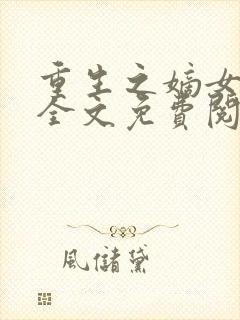 重生之嫡女
全文免費閱
風儲黛